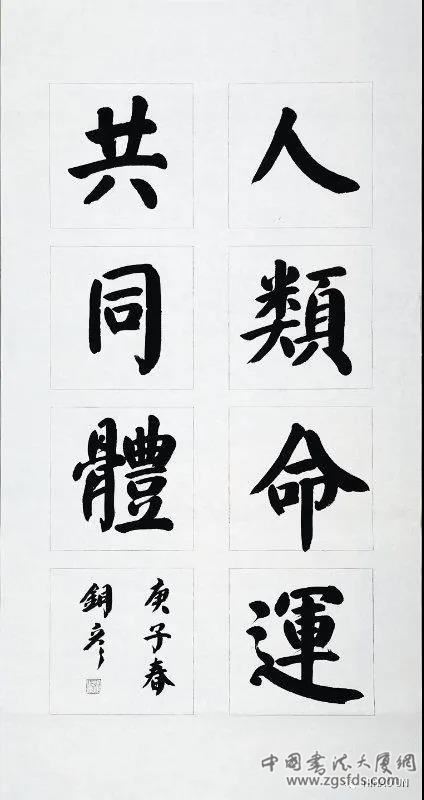 人類命運
共同體
庚子春
銅彥
中國書法大厦網
www.zgsfds.com